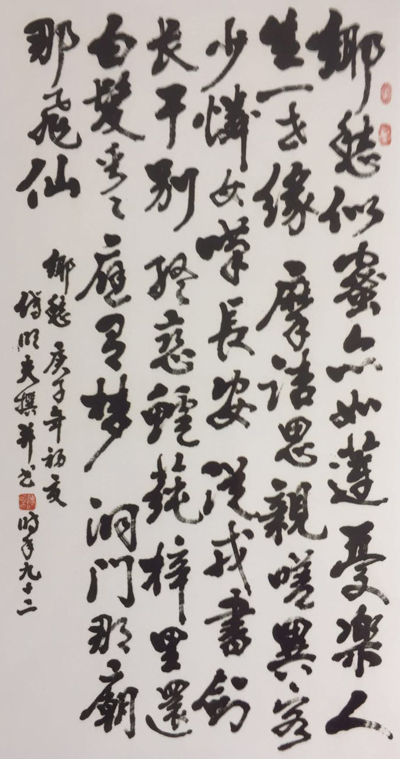 鄉愁似蜜亦如蓮憂樂人
生一世緣摩詰思親嗟異客
少憐女嘆長安從戎書劍
长干別終戀鱸蒓梓里還
白髮垂々庭有夢洞門那廟
那飛仙
鄉愁 庚子年初夏
傅明夫撰并书 時年九十二